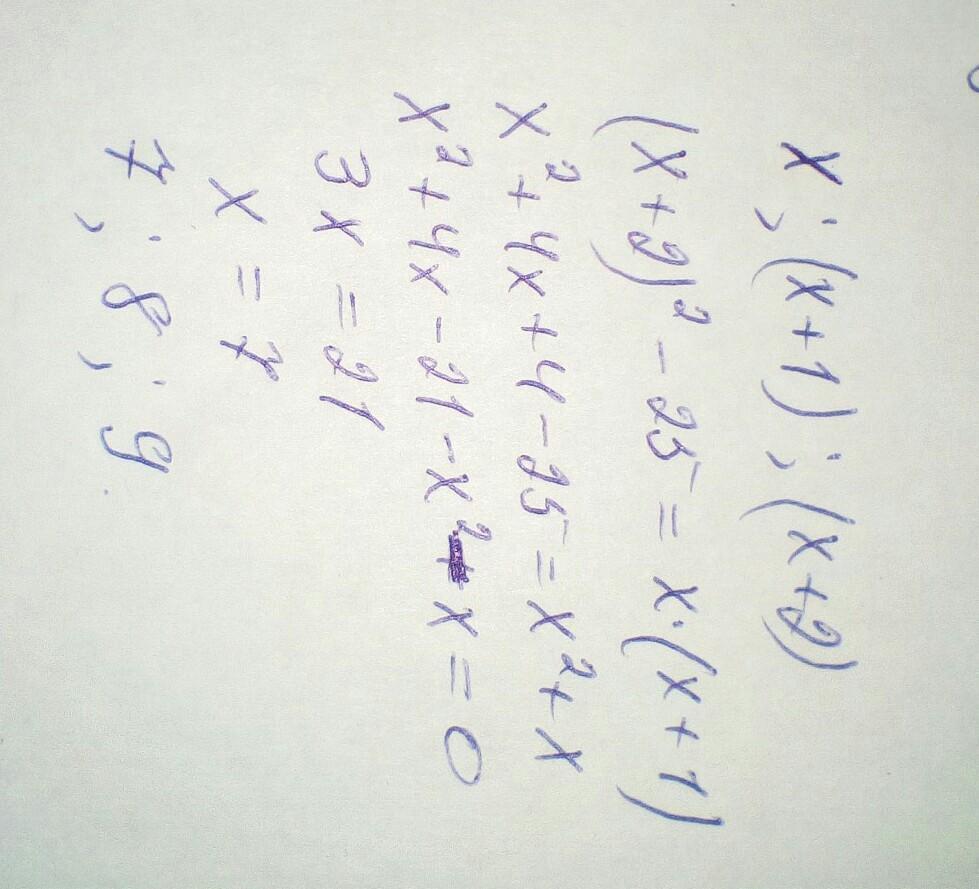 x; (x+1); (x+2)
(x+2)² - 25 = x·(x+1)
x² + 4x + 4 - 25 = x² + x
x² + 4x - 21 - x² - x = 0
3x = 21
x = 7
7; 8; 9.